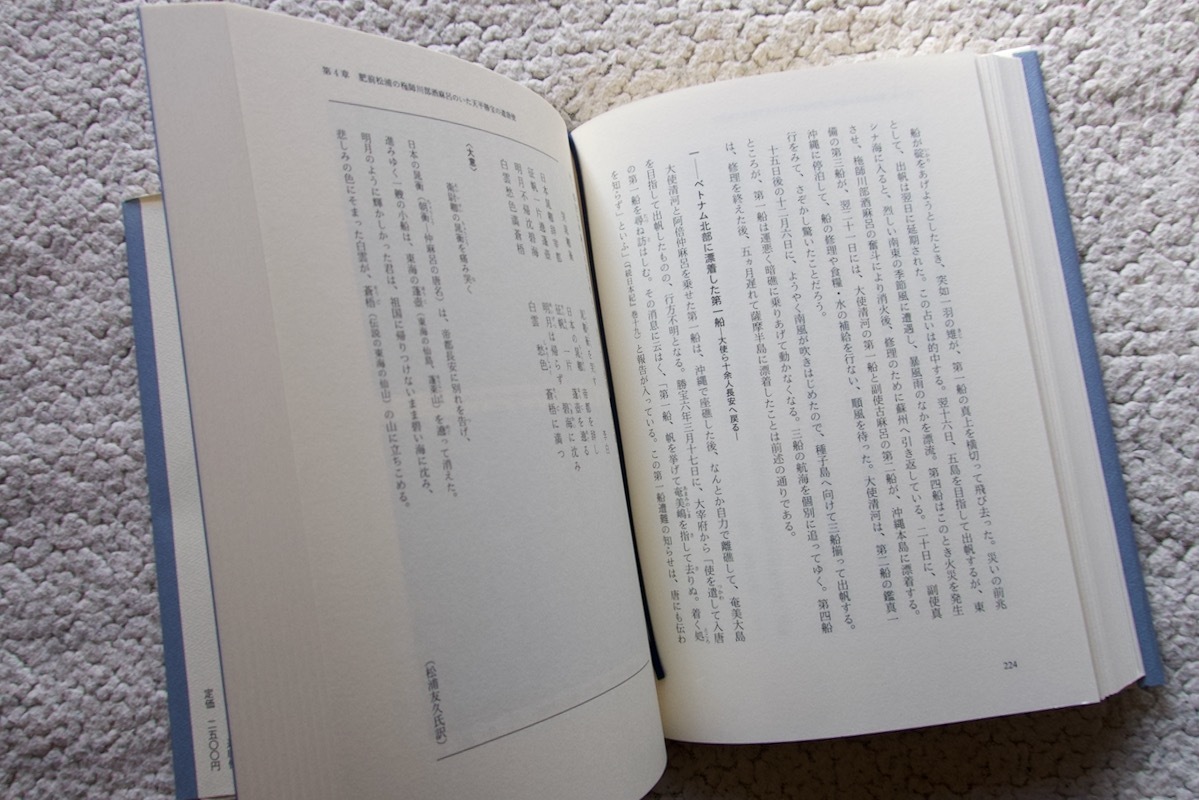 船が碇をあげようとしたとき、突如一羽の雉が、第一船の真上を横切って飛び去った。災いの前兆
として、出帆は翌日に延期された。この占いは的中する。翌十六日、五島を目指して出帆するが、東
シナ海に入ると、烈しい南東の季節風に遭遇し、暴風雨のなかを漂流。第四船はこのとき火災を発生
させ、柂師川部酒麻呂の奮斗により消火後、修理のために蘇州へ引き返している。二十日に、副使真
備の第三船が、翌二十一日には、大使清河の第一船と副使古麻呂の第二船が、沖縄本島に漂着する。
沖縄に停泊して、船の修理や食糧・水の補給を行ない、順風を待った。大使清河は、第二船の鑑真一
行をみて、さぞかし驚いたことだろう。
十五日後の十二月六日に、ようやく南風が吹きはじめたので、種子島へ向けて三船揃って出帆する。
ところが、第一船は運悪く暗礁に乗りあげて動かなくなる。三船の航海を個別に追ってゆく。第四船
は、修理を終えた後、五ヵ月遅れて薩摩半島に漂着したことは前述の通りである。
一――ベトナム北部に漂着した第一船―大使ら十余人長安へ戻る―
大使清河と阿倍仲麻呂を乗せた第一船は、沖縄で座礁した後、なんとか自力で離礁して、奄美大島
を目指して出帆したものの、行方不明となる。勝宝六年三月十七日に、大宰府から「使を遣して入唐
の第一船を尋ね訪はしむ。その消息に云はく、「第一船、帆を挙げて奄美嶋を指して去りぬ。着く処
を知らず」といふ」(『続日本紀』巻十九)と報告が入っている。この第一船遭難の知らせは、唐にも伝わ
224
第4章 肥前松浦の柂師川部酒麻呂のいた天平勝宝の遣唐使
日本晁卿辞帝都
征帆一片遶蓬壺
明月不帰沈碧海
白雲愁色満蒼梧
日本の晁卿 帝都を辞し
征帆 一片 蓬壺を遶る
明月は帰らず 碧海に沈み
白雲 愁色 蒼梧に満つ
〈大意〉
衛尉卿の晁衡を痛み哭く
日本の晁衡(朝衡―仲麻呂の唐名)は、帝都長安に別れを告げ、
進みゆく一艘の小船は、東海の蓬壺(東海の仙島、蓬莱山)を遶って消えた。
明月のように輝かしかった君は、祖国に帰りつけないまま碧い海に沈み、
悲しみの色にそまった白雲が、蒼梧(伝説の東海の仙山)の山に立ちこめる。
(松浦友久氏訳)
定価 二五〇〇円